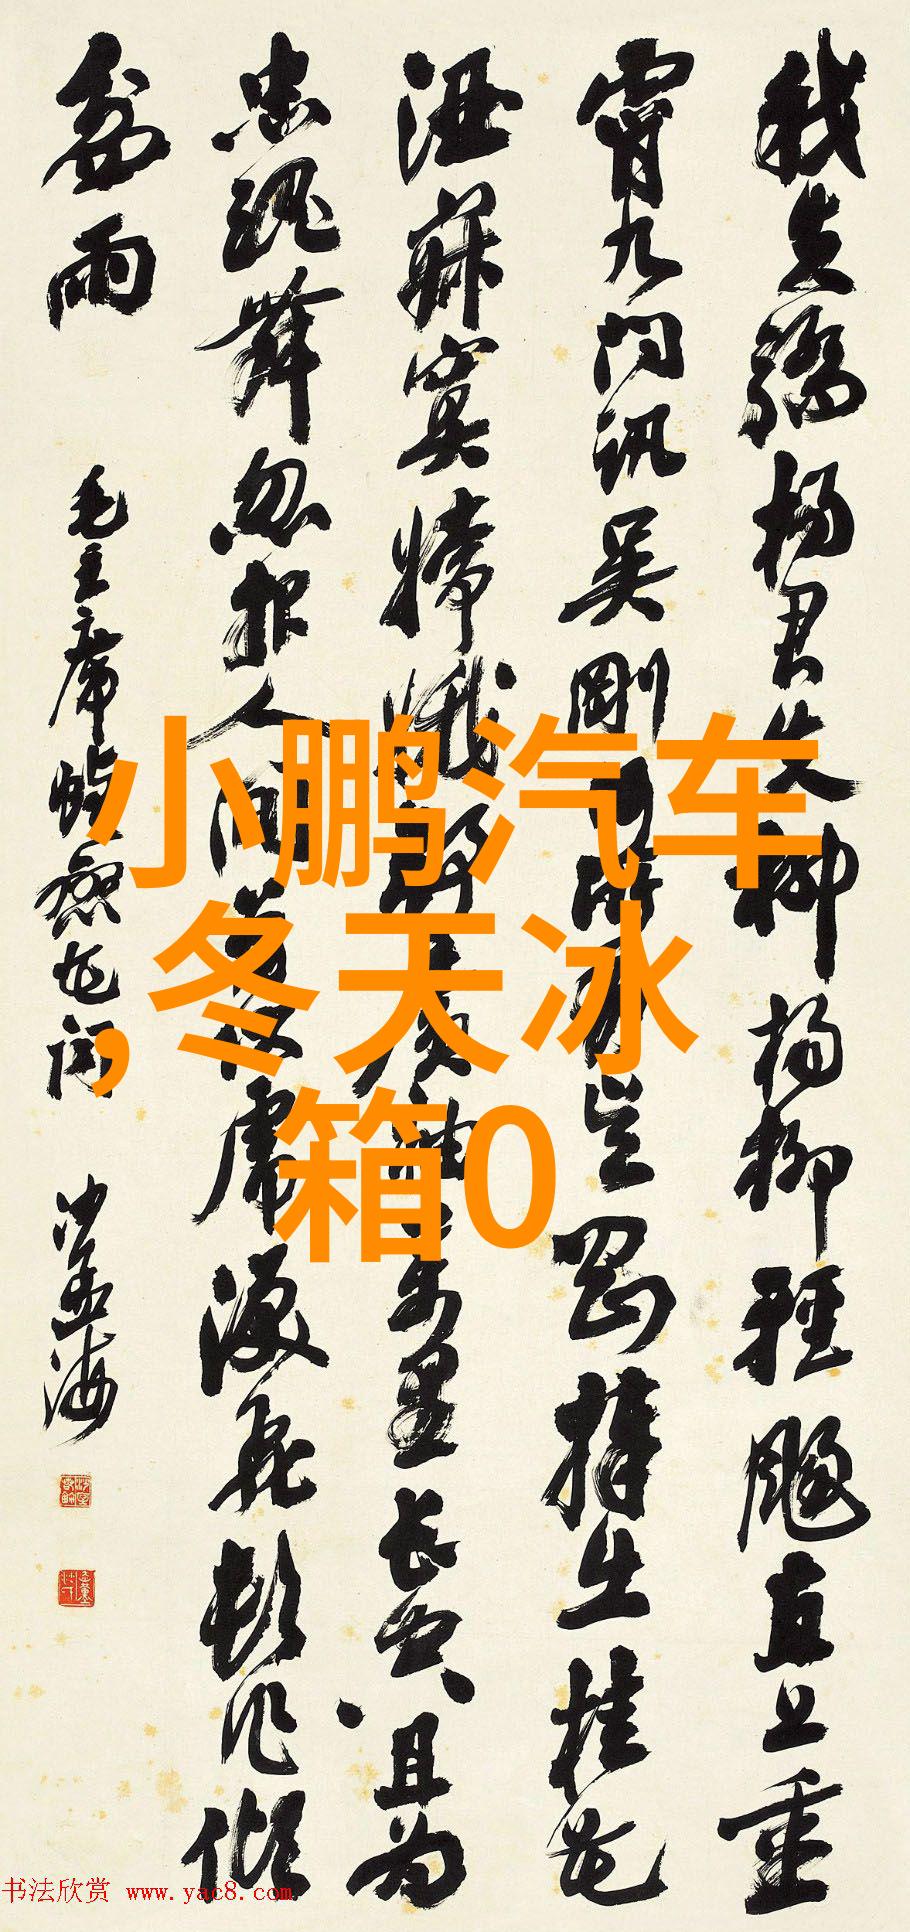 我失驕杨君失柳杨柳轻飏直上重
霄九问讯吴刚何所有吴刚捧出桂花
酒寂寞嫦娥舒广袖万里长空且为
忠魂舞忽报人间曾伏虎泪飞顿作倾
盆雨
毛主席蝶恋花词
沙孟海
小鹏汽车
,冬天冰
箱0
书法欣赏 www.yac8.com